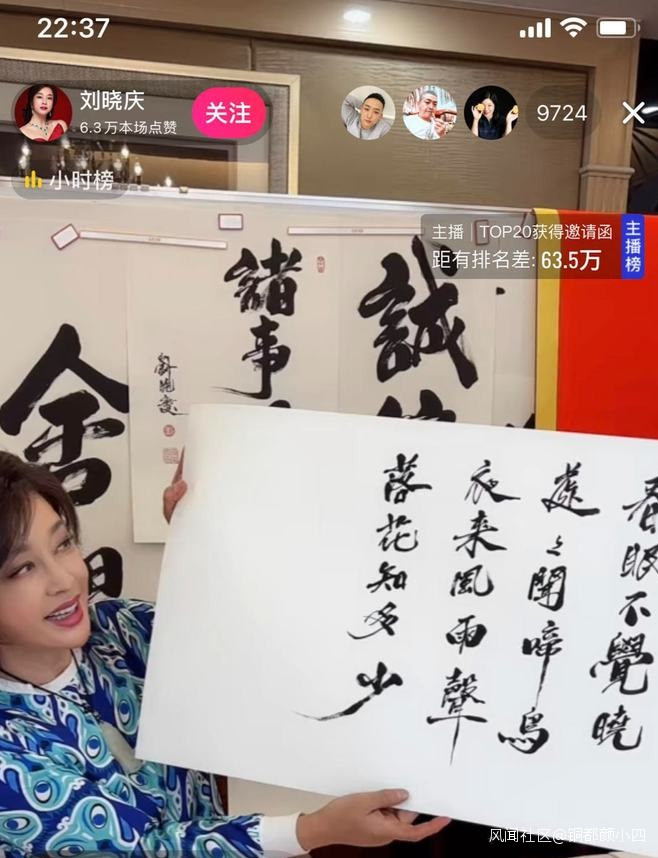 22:37
刘晓庆
6.3万本场点赞
关注
9724
小时榜
主播 TOP20获得邀请函
距有排名差: 63.5万
主播榜
誠
諸事
劉曉慶
舍
春眼不覺曉
處〻聞啼鳥
夜来風雨聲
落花知多少
风闻社区@铜都颜小四